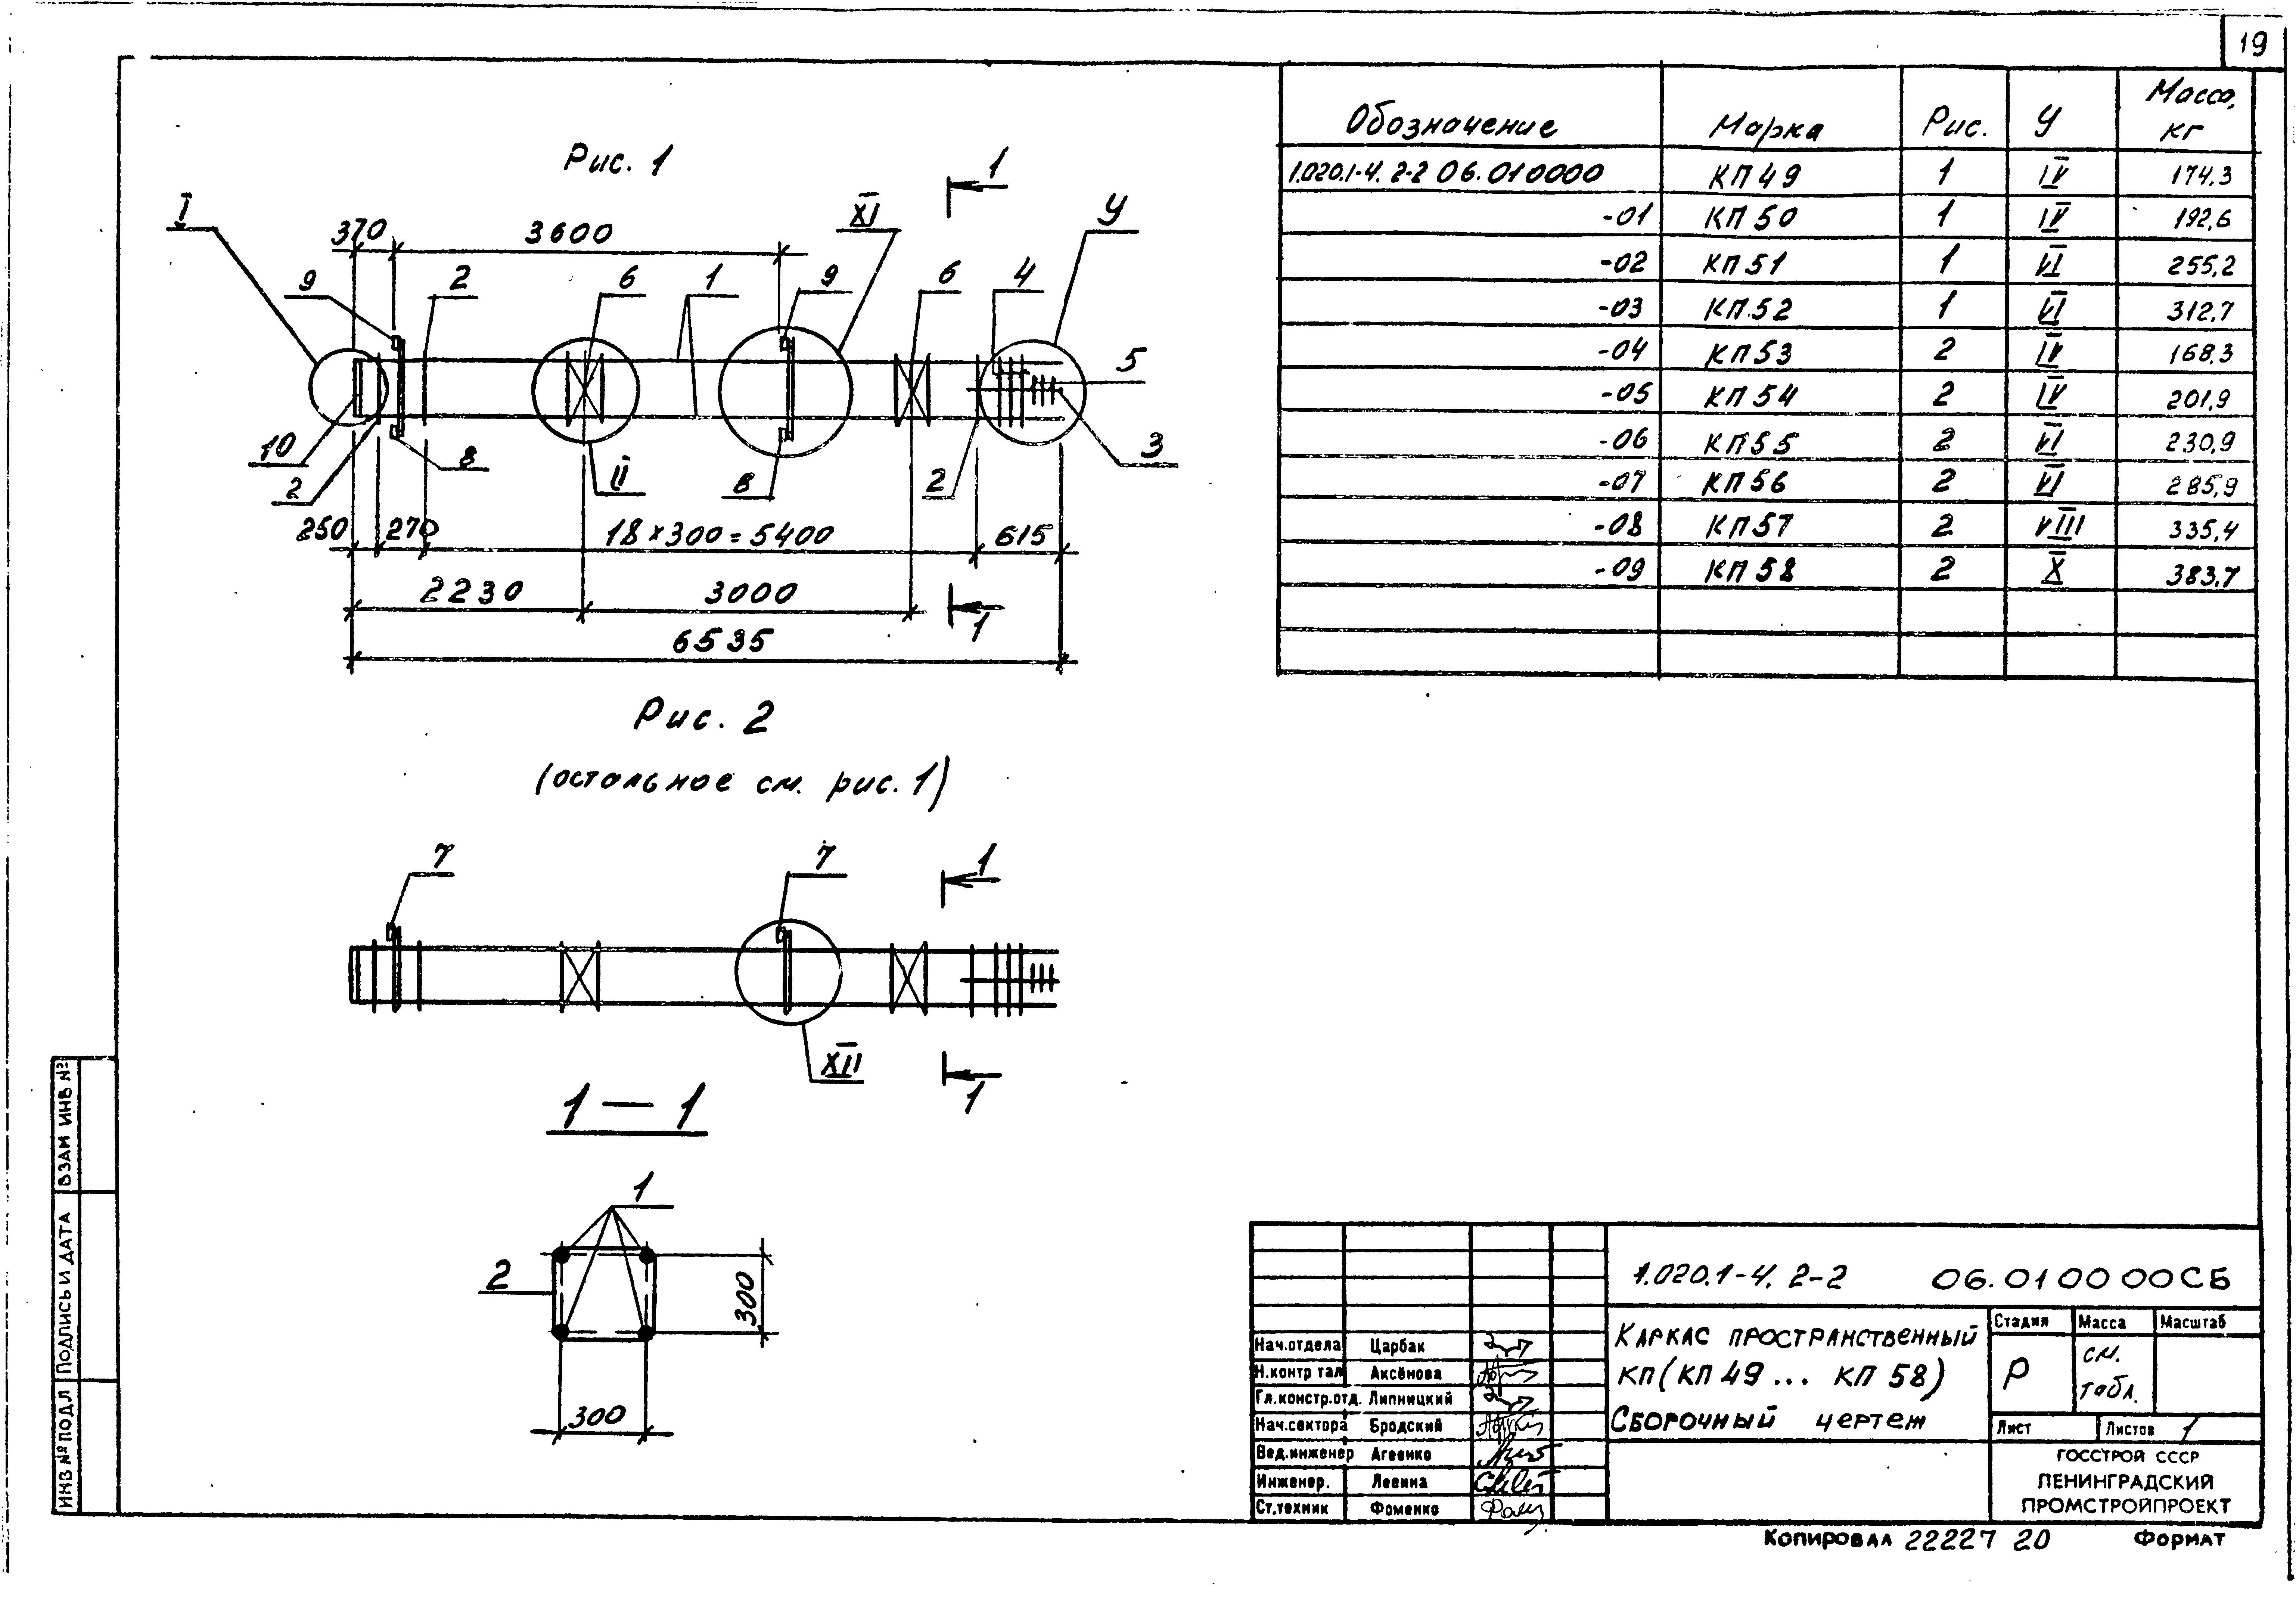 19
Рис. 1
I
370
3600
XI
1
У
9
2
6
1
9
6
4
5
10
2
8
II
8
2
3
250
270
18×300=5400
615
2230
3000
1
6535
Обозначение Марка Рис. У Масса, кг
1.020.1-4. 2-2 06.010000 КП49 1 IV 174,3
-01 КП50 1 IV 192,6
-02 КП51 1 VI 255,2
-03 КП52 1 VI 312,7
-04 КП53 2 IV 168,3
-05 КП54 2 IV 201,9
-06 КП55 2 VI 230,9
-07 КП56 2 VI 285,9
-08 КП57 2 VIII 335,4
-09 КП58 2 X 383,7
Рис. 2
(остальное см. рис. 1)
7
7
1
XII
1
1 — 1
1
2
300
300
ИНВ № ПОДЛ
ПОДПИСЬ И ДАТА
ВЗАМ ИНВ №
1.020.1-4. 2-2 06.010000СБ
Нач.отдела Царбак
Н.контр тал Аксёнова
Гл.констр.отд. Липницкий
Нач.сектора Бродский
Вед.инженер Агеенко
Инженер. Левина
Ст.техник Фоменко
КАРКАС ПРОСТРАНСТВЕННЫЙ
КП(КП 49... КП 58)
СБОРОЧНЫЙ ЧЕРТЕЖ
Стадия Масса Масштаб
Р см. табл.
Лист Листов 1
ГОССТРОЙ СССР
ЛЕНИНГРАДСКИЙ
ПРОМСТРОЙПРОЕКТ
Копировал 22227 20 Формат